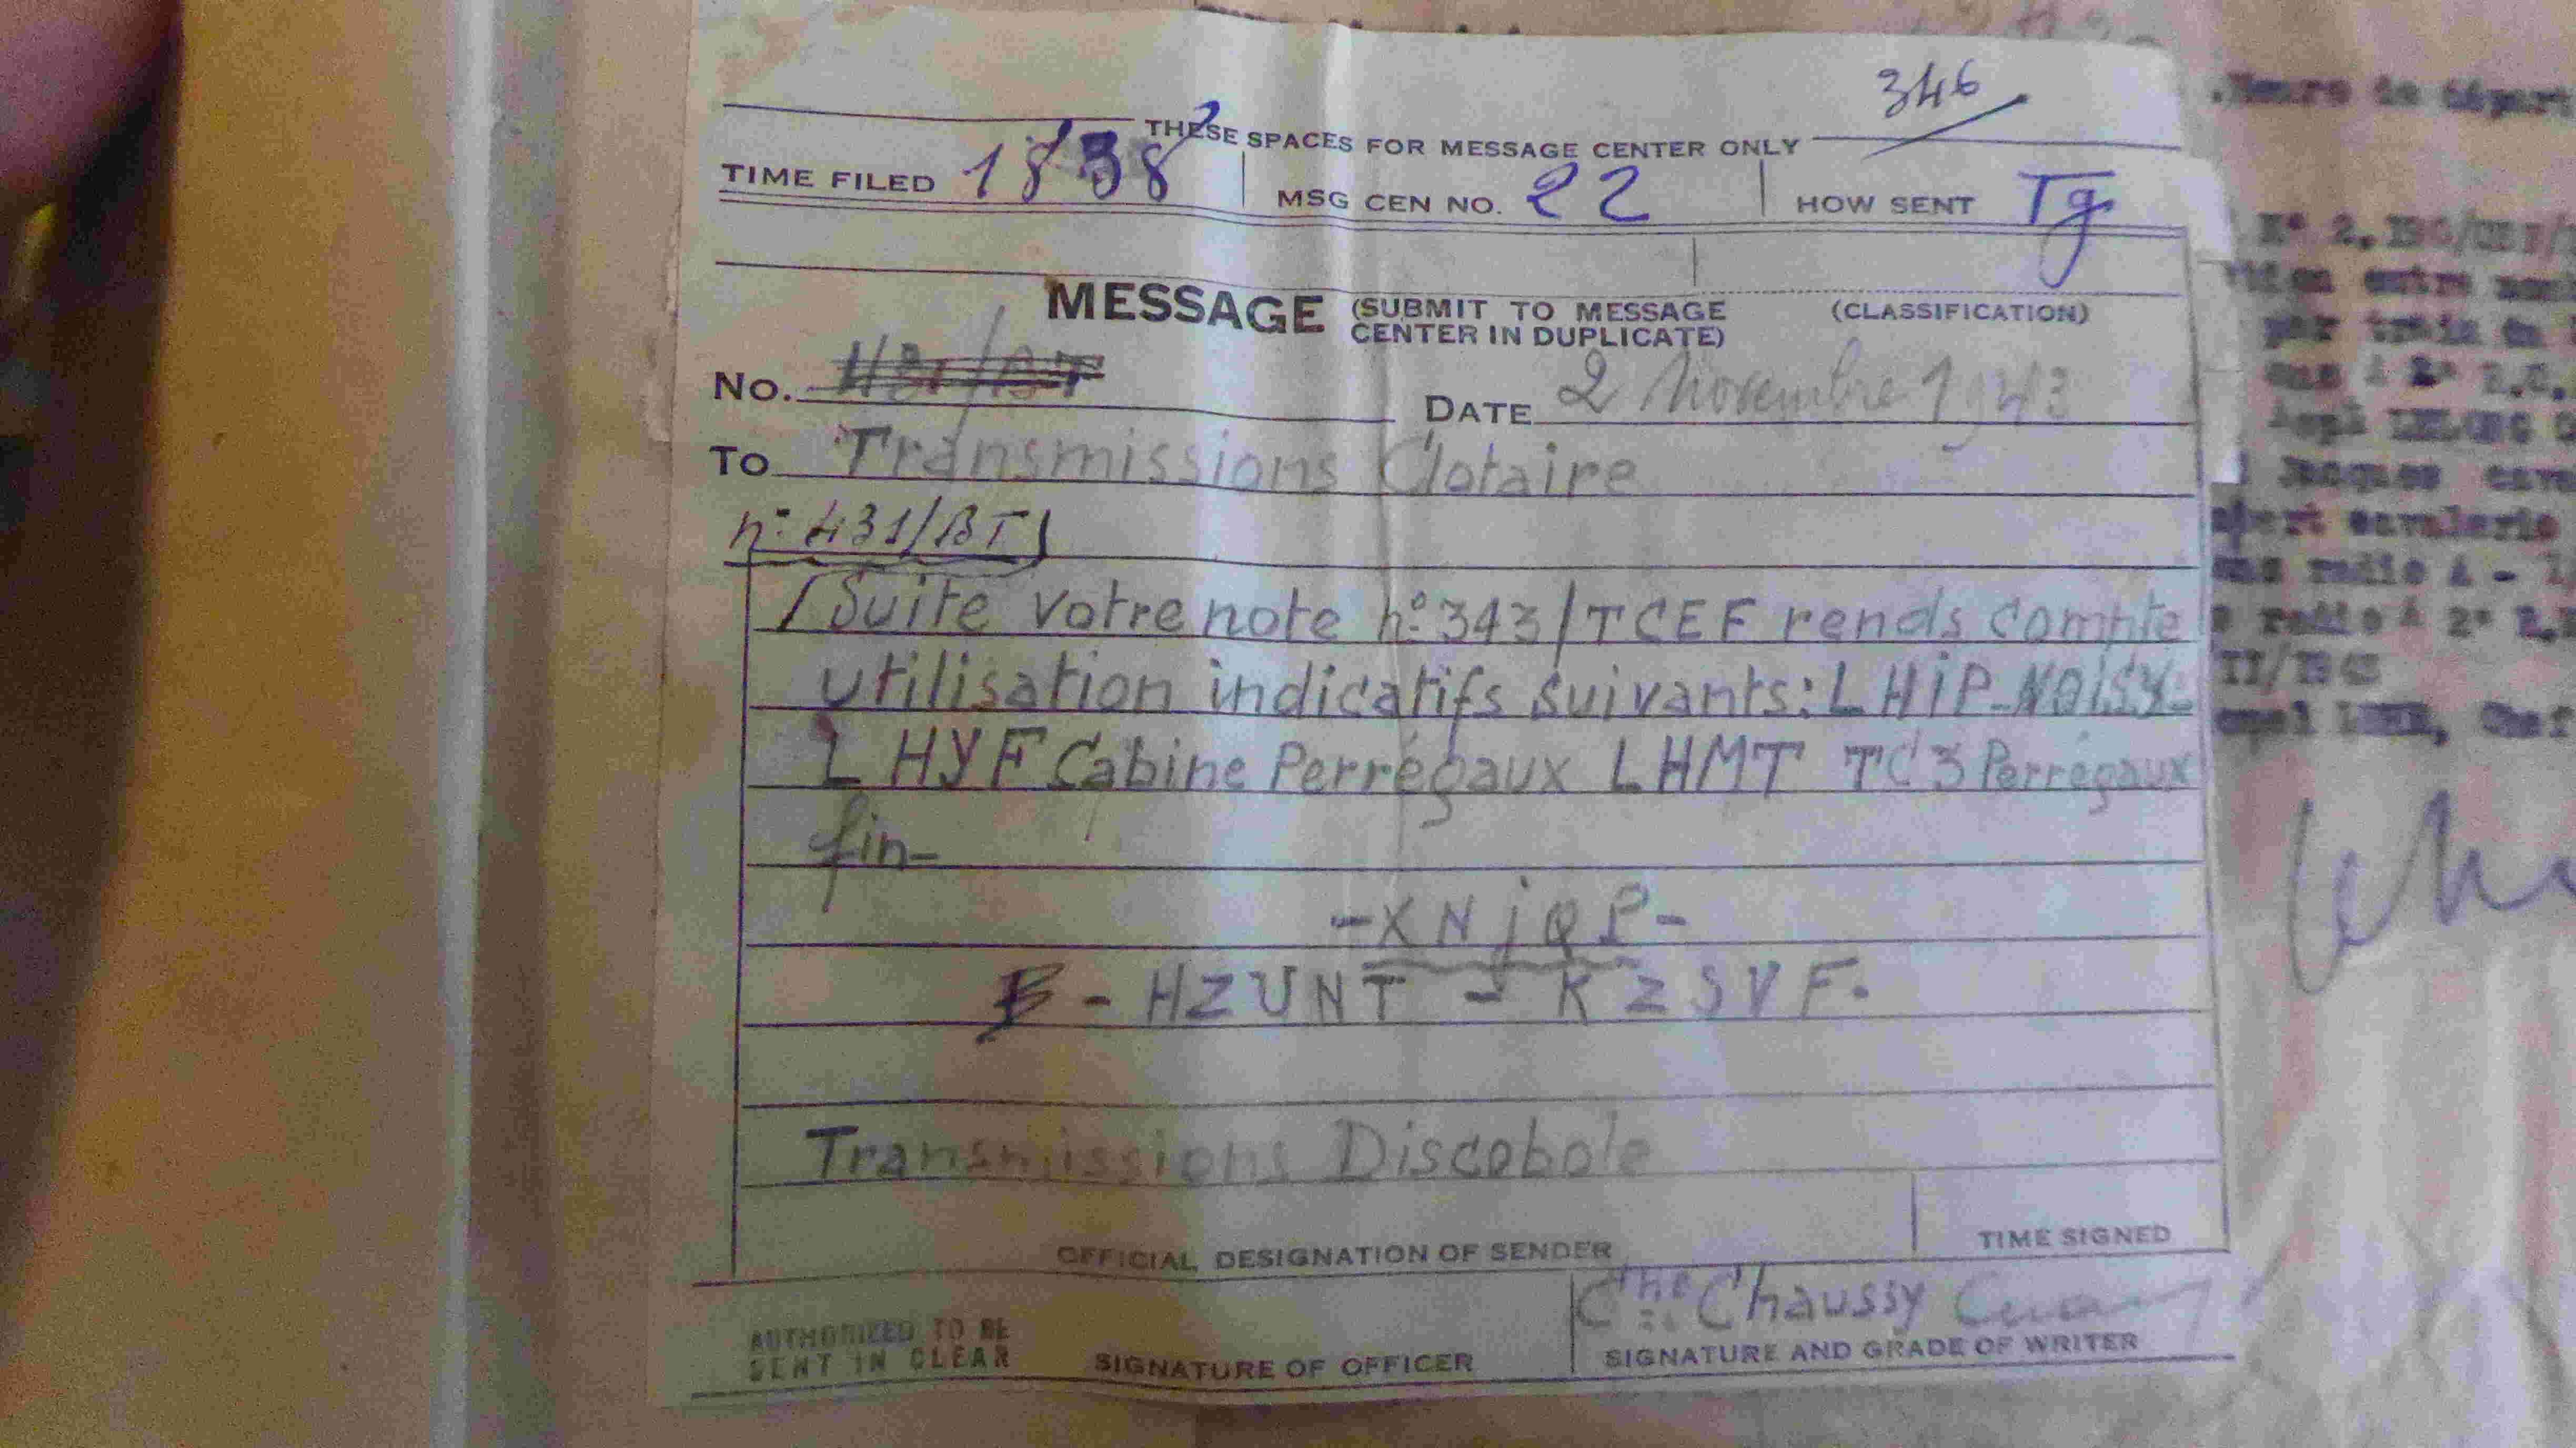 346
THESE SPACES FOR MESSAGE CENTER ONLY
TIME FILED 1838 MSG CEN NO. 22 HOW SENT Tg
MESSAGE (SUBMIT TO MESSAGE CENTER IN DUPLICATE) (CLASSIFICATION)
No. DATE 2 Novembre 1943
To Transmissions Clotaire
n° 431/BT
Suite votre note n° 343/TCEF rends compte
utilisation indicatifs suivants: LHiP-NOISY-
LHYF Cabine Perrégaux LHMT TC3 Perrégaux
fin-
-XNjQP-
- HZUNT - KZSVF.
Transmissions Discobole
OFFICIAL DESIGNATION OF SENDER TIME SIGNED
Cne Chaussy
AUTHORIZED TO BE SENT IN CLEAR SIGNATURE OF OFFICER SIGNATURE AND GRADE OF WRITER
Heure de départ
par train
Jacques
cavalerie
radio A -
radio A 2°